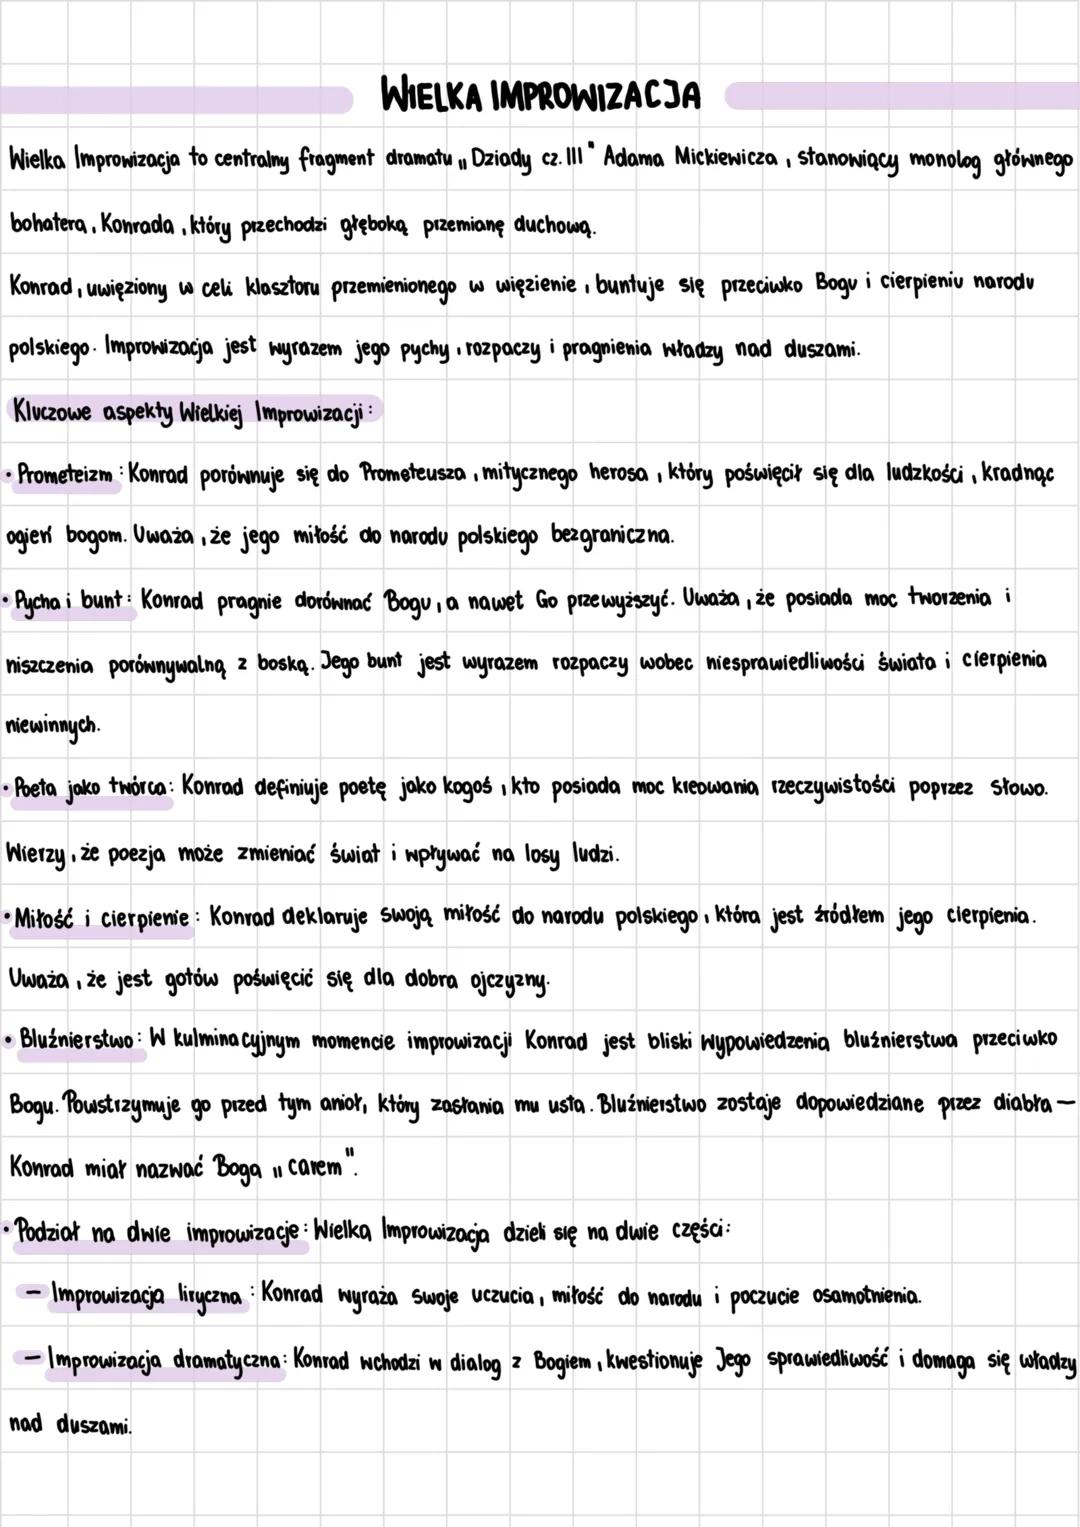 WIELKA IMPROWIZACJA
Wielka Improwizacja to centralny fragment dramatu „Dziady cz. III" Adama Mickiewicza, stanowiący monolog głównego
bohatera, Konrada, który przechodzi głęboką przemianę duchową.
Konrad, uwięziony w celi klasztoru przemienionego w więzienie, buntuje się przeciwko Bogu i cierpieniu narodu
polskiego. Improwizacja jest wyrazem jego pychy, rozpaczy i pragnienia władzy nad duszami.
Kluczowe aspekty Wielkiej Improwizacji:
• Prometeizm: Konrad porównuje się do Prometeusza, mitycznego herosa, który poświęcił się dla ludzkości, kradnąc
ogień bogom. Uważa, że jego miłość do narodu polskiego bezgraniczna.
• Pycha i bunt: Konrad pragnie dorównać Bogu, a nawet Go przewyższyć. Uważa, że posiada moc tworzenia i
niszczenia porównywalną z boską. Jego bunt jest wyrazem rozpaczy wobec niesprawiedliwości świata i cierpienia
niewinnych.
• Poeta jako twórca: Konrad definiuje poetę jako kogoś, kto posiada moc kreowania rzeczywistości poprzez słowo.
Wierzy, że poezja może zmieniać świat i wpływać na losy ludzi.
• Miłość i cierpienie: Konrad deklaruje swoją miłość do narodu polskiego, która jest źródłem jego cierpienia.
Uważa, że jest gotów poświęcić się dla dobra ojczyzny.
• Bluźnierstwo: W kulminacyjnym momencie improwizacji Konrad jest bliski wypowiedzenia bluźnierstwa przeciwko
Bogu. Powstrzymuje go przed tym anioł, który zasłania mu usta. Bluźnierstwo zostaje dopowiedziane przez diabła –
Konrad miał nazwać Boga „carem".
• Podział na dwie improwizacje: Wielka Improwizacja dzieli się na dwie części:
– Improwizacja liryczna: Konrad wyraża swoje uczucia, miłość do narodu i poczucie osamotnienia.
– Improwizacja dramatyczna: Konrad wchodzi w dialog z Bogiem, kwestionuje Jego sprawiedliwość i domaga się władzy
nad duszami.